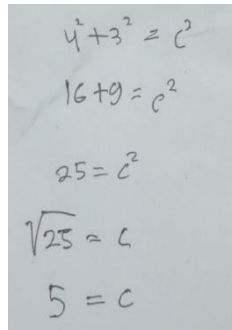 4² + 3² = c²
16 + 9 = c²
25 = c²
√25 = c
5 = c